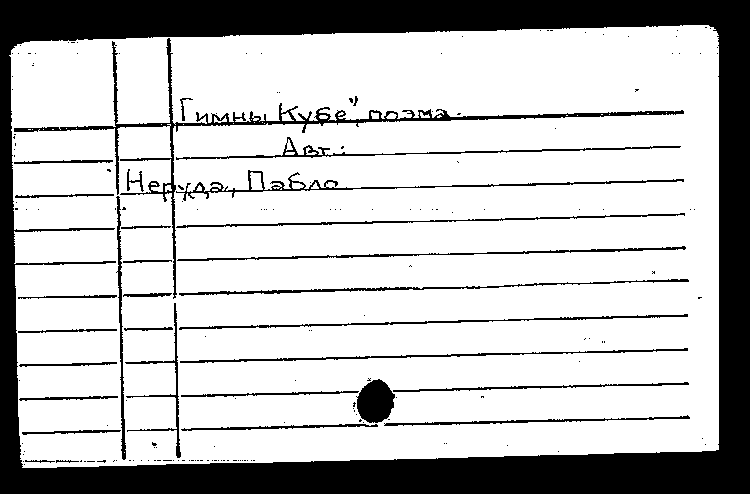 „Гимны Кубе", поэма.
Авт.:
Неруда, Пабло